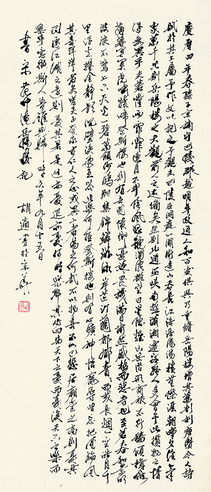 慶曆四年春滕子京謫守巴陵郡越明年政通人和百廢俱興乃重修岳陽樓增其舊制刻唐賢今人詩
賦於其上屬予作文以記之予觀夫巴陵勝狀在洞庭一湖銜遠山吞長江浩浩湯湯橫無際涯朝暉夕陰氣
象萬千此則岳陽樓之大觀也前人之述備矣然則北通巫峽南極瀟湘遷客騷人多會於此覽物之情
得無異乎若夫霪雨霏霏連月不開陰風怒號濁浪排空日星隱曜山岳潛形商旅不行檣傾楫
摧薄暮冥冥虎嘯猿啼登斯樓也則有去國懷鄉憂讒畏譏滿目蕭然感極而悲者矣至若春和景明
波瀾不驚上下天光一碧萬頃沙鷗翔集錦鱗游泳岸芷汀蘭郁郁青青而或長煙一空皓月千
里浮光躍金靜影沉璧漁歌互答此樂何極登斯樓也則有心曠神怡寵辱偕忘把酒臨風
其喜洋洋者矣嗟夫予嘗求古仁人之心或異二者之為何哉不以物喜不以己悲居廟堂之高則憂其
民處江湖之遠則憂其君是進亦憂退亦憂然則何時而樂耶其必曰先天下之憂而憂後天下之樂而
樂乎噫微斯人吾誰與歸時六年九月十五日
書宋范仲淹岳陽樓記